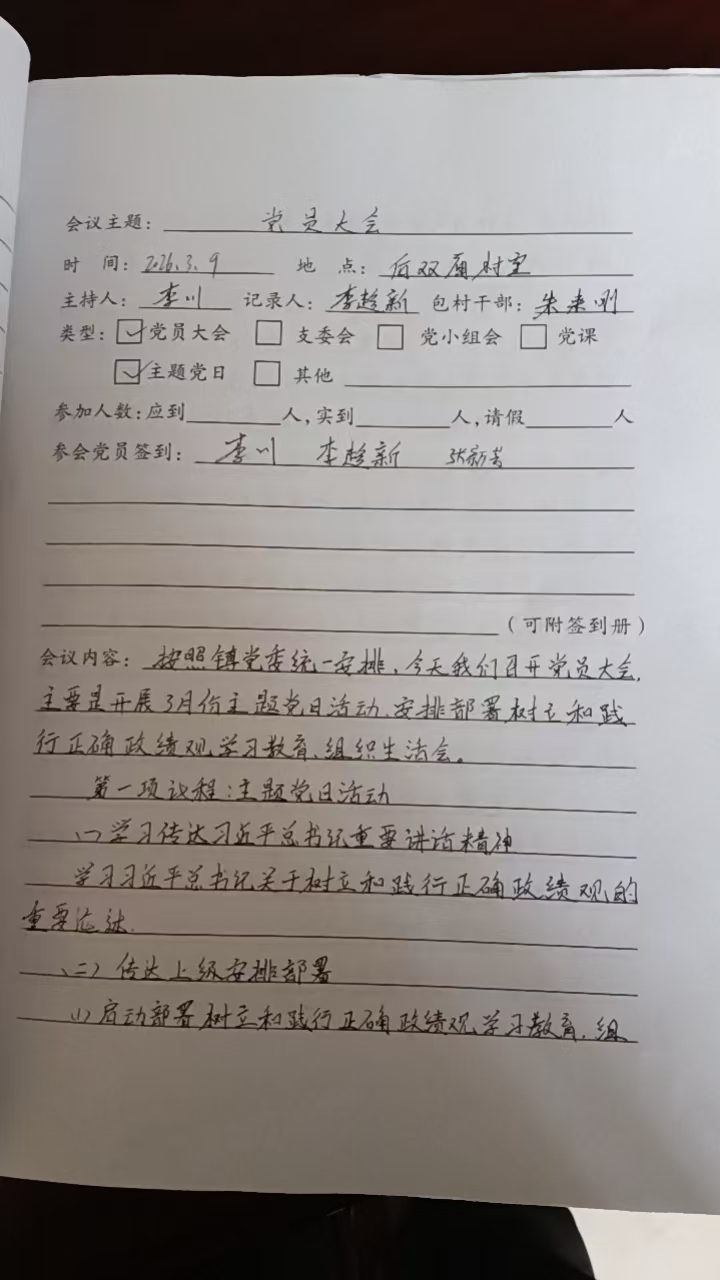 会议主题: 党员大会
时 间: 2026.3.9 地 点: 后双庙村室
主持人: 李川 记录人: 李趁新 包村干部: 朱来刚
类型: 党员大会 支委会 党小组会 党课
主题党日 其他
参加人数:应到 人,实到 人,请假 人
参会党员签到: 李川 李趁新 张新芳
(可附签到册)
会议内容: 按照镇党委统一安排,今天我们召开党员大会,
主要是开展3月份主题党日活动,安排部署树立和践
行正确政绩观学习教育、组织生活会。
第一项议程:主题党日活动
(一)学习传达习近平总书记重要讲话精神
学习习近平总书记关于树立和践行正确政绩观的
重要论述.
(二)传达上级安排部署
(1)启动部署树立和践行正确政绩观学习教育,组